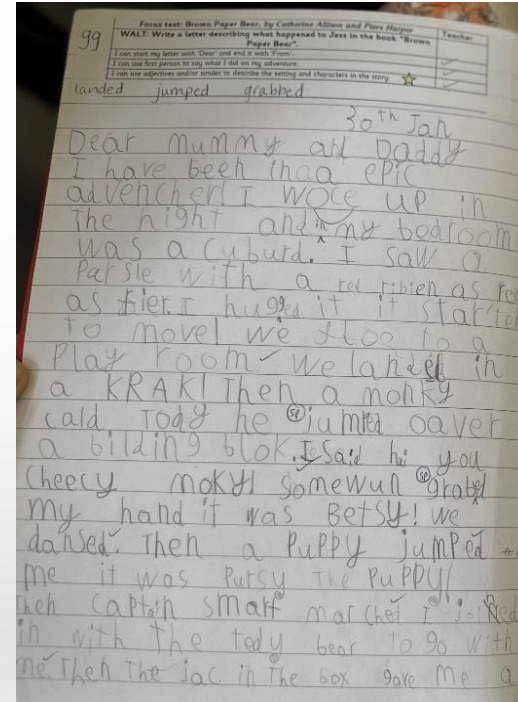 99
Focus text: Brown Paper Bear, by Catherine Allison and Piers Harper
WALT: Write a letter describing what happened to Jess in the book "Brown Paper Bear".
Teacher
I can start my letter with 'Dear' and end it with 'From'.
I can use first person to say what I did on my adventure.
I can use adjectives and/or similes to describe the setting and characters in the story.
landed jumped grabbed
30th Jan
Dear mummy and Daddy
I have been in a epic
advencher! I woce up in
The night and in my bedroom
was a cuburd. I saw a
Parsle with a red ribien as red
as fier. I hugged it it started
to move! we floo to a
Play room we landed in
a KRAK! Then a monky
cald Tody he sp jumped oaver
a bilding blok. I said hi you
cheecy moky! somewun sp grabed
my hand it was BetSy! we
dansed. Then a PuPPy jumped
me it was Putsy The PuPPy!
Then captain smart marched I joined
in with the tedy bear to go with
me Then The jac in The box gave me a